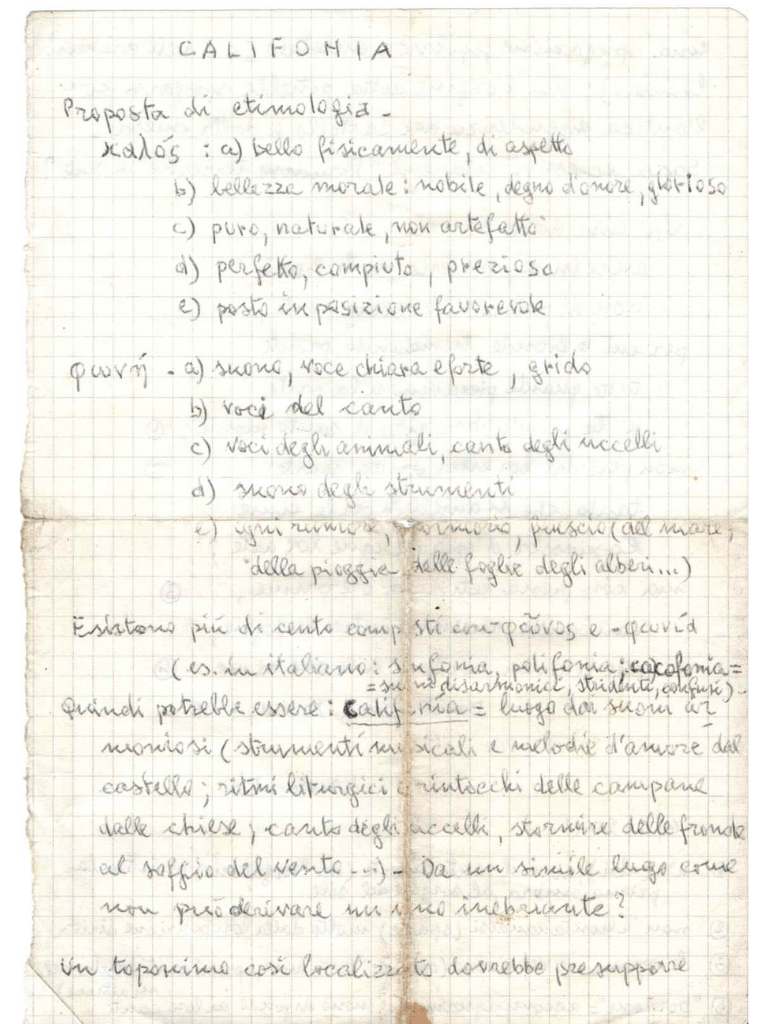 CALIFONIA
Proposta di etimologia -
καλός : a) bello fisicamente, di aspetto
b) bellezza morale : nobile, degno d'onore, glorioso
c) puro, naturale, non artefatto
d) perfetto, compiuto, prezioso
e) posto in posizione favorevole
φωνή - a) suono, voce chiara e forte, grido
b) voci del canto
c) voci degli animali, canto degli uccelli
d) suono degli strumenti
e) ogni rumore, mormorio, fruscio (del mare,
della pioggia, delle foglie degli alberi...)
Esistono più di cento composti con -φωνος e -φωνία
(es. in italiano : sinfonia, polifonia ; cacofonia =
= suoni disarmonici, stridenti, confusi) -
Quindi potrebbe essere : Califonia = luogo dai suoni ar
moniosi (strumenti musicali e melodie d'amore dal
castello ; ritmi liturgici e rintocchi delle campane
dalle chiese ; canto degli uccelli, stormire delle fronde
al soffio del vento ...) - Da un simile luogo come
non può derivare un vino inebriante ?
Un toponimo così localizzato dovrebbe presupporre